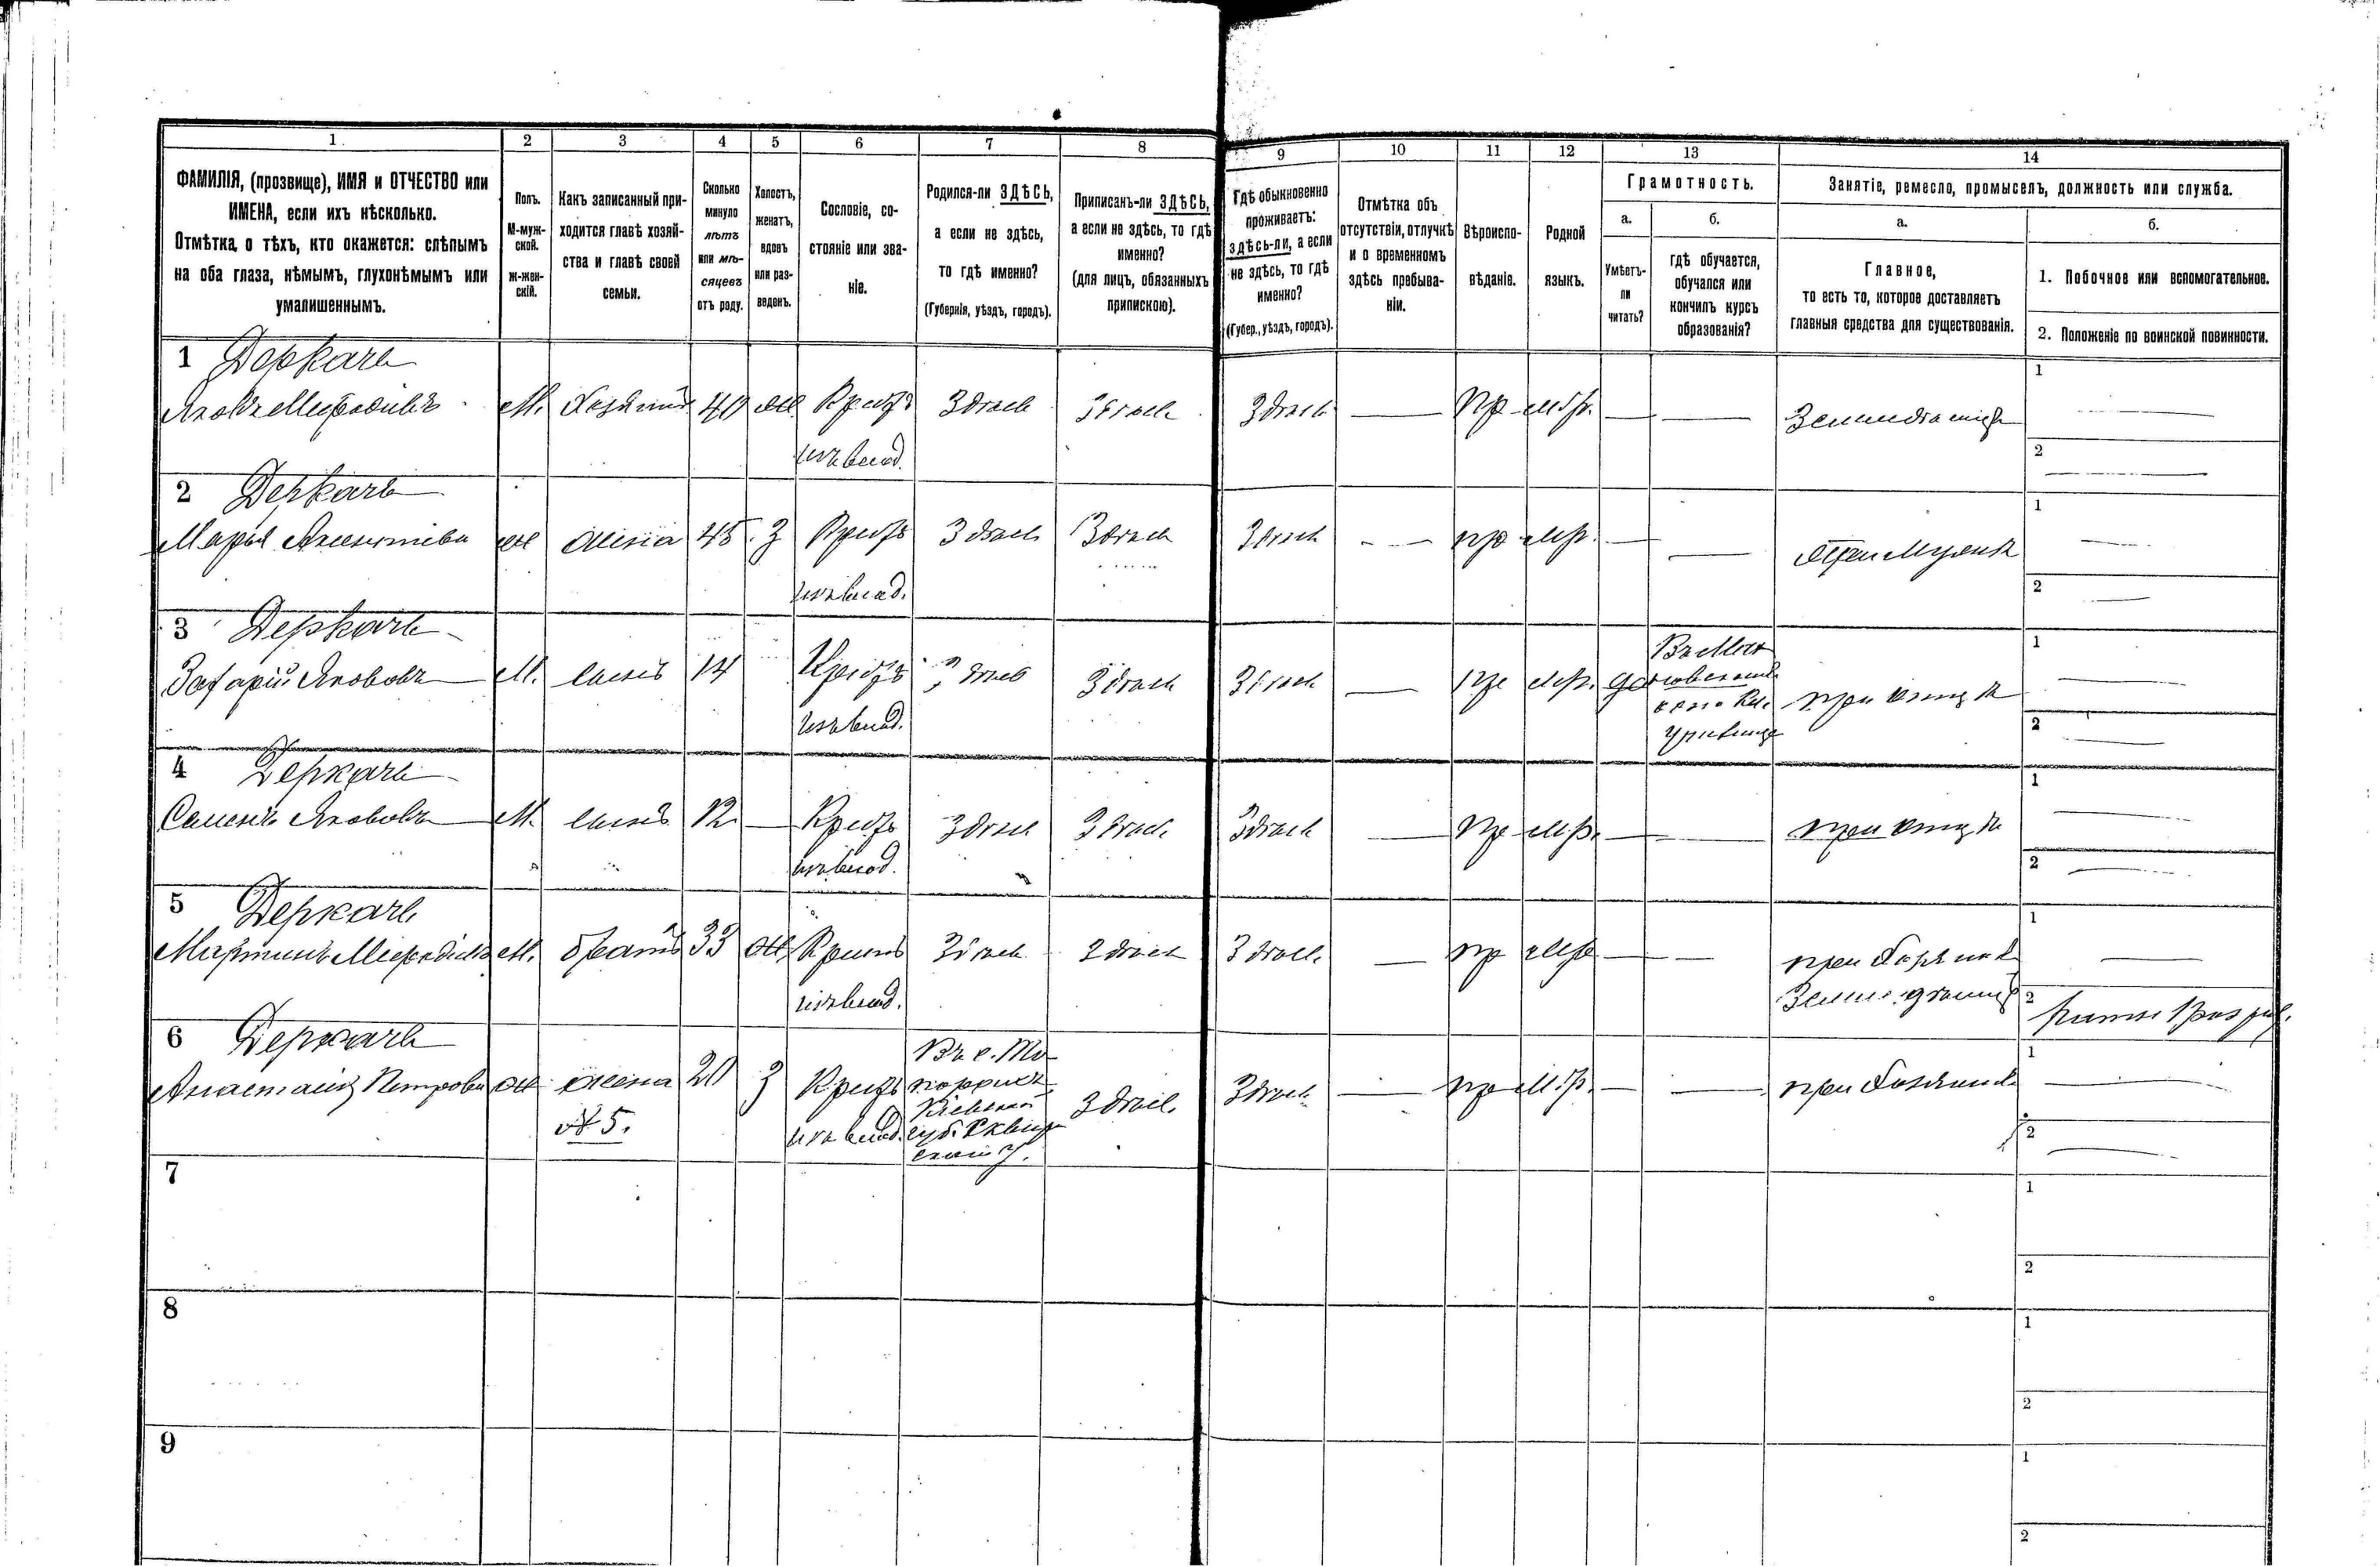 1 2 3 4 5 6 7 8 9 10 11 12 13 14
ФАМИЛІЯ, (прозвище), ИМЯ и ОТЧЕСТВО или
ИМЕНА, если ихъ нѣсколько.
Отмѣтка о тѣхъ, кто окажется: слѣпымъ
на оба глаза, нѣмымъ, глухонѣмымъ или
умалишеннымъ.
Полъ.
М-муж-
ской.
Ж-жен-
скій.
Какъ записанный при-
ходится главѣ хозяй-
ства и главѣ своей
семьи.
Сколько
минуло
лѣтъ
или мѣ-
сяцевъ
отъ роду.
Холостъ,
женатъ,
вдовъ
или раз-
веденъ.
Сословіе, со-
стояніе или зва-
ніе.
Родился-ли ЗДѢСЬ,
а если не здѣсь,
то гдѣ именно?
(Губернія, уѣздъ, городъ).
Приписанъ-ли ЗДѢСЬ,
а если не здѣсь, то гдѣ
именно?
(для лицъ, обязанныхъ
припискою).
Гдѣ обыкновенно
проживаетъ:
здѣсь-ли, а если
не здѣсь, то гдѣ
именно?
(Губер., уѣздъ, городъ).
Отмѣтка объ
отсутствіи, отлучкѣ
и о временномъ
здѣсь пребыва-
ніи.
Вѣроиспо-
вѣданіе.
Родной
языкъ.
Грамотность.
а.
Умѣетъ-
ли
читать?
б.
гдѣ обучается,
обучался или
кончилъ курсъ
образованія?
Занятіе, ремесло, промыселъ, должность или служба.
а.
Главное,
то есть то, которое доставляетъ
главныя средства для существованія.
б.
1. Побочное или вспомогательное.
2. Положеніе по воинской повинности.
1 Деркачъ
Яковъ Мефодіевъ М. хозяинъ 40 ж Крест Здѣсь Здѣсь Здѣсь — Пр мр. — — Земледѣліе 1 —
изъ влад. 2 —
2 Деркачъ
Марья ж жена 45 З Крест Здѣсь Здѣсь Здѣсь — пр мр. — — При мужѣ 1 —
изъ влад. 2 —
3 Деркачъ
Захарій Якововъ М. сынъ 14 Крест Здѣсь Здѣсь Здѣсь — пр мр. да при отцѣ 1 —
училище
изъ влад. 2 —
4 Деркачъ
Семенъ Якововъ М. сынъ 12 — Крест Здѣсь Здѣсь Здѣсь — Пр мр. — — при отцѣ 1 —
изъ влад. 2 —
5 Деркачъ
Мартинъ Мефодіевъ М. братъ 33 ж Крест Здѣсь Здѣсь Здѣсь — пр мр — — при хозяинѣ 1 —
изъ влад. Земледѣліе 2
6 Деркачъ
Анастасія Петрова ж жена 20 З Крест Здѣсь Здѣсь — пр м.р. — — при хозяинѣ 1 —
№ 5. изъ влад. 2 —
Въ с.
Кіевской
губ. Сквир
скаго у.
7 1
2
8 1
2
9 1
2